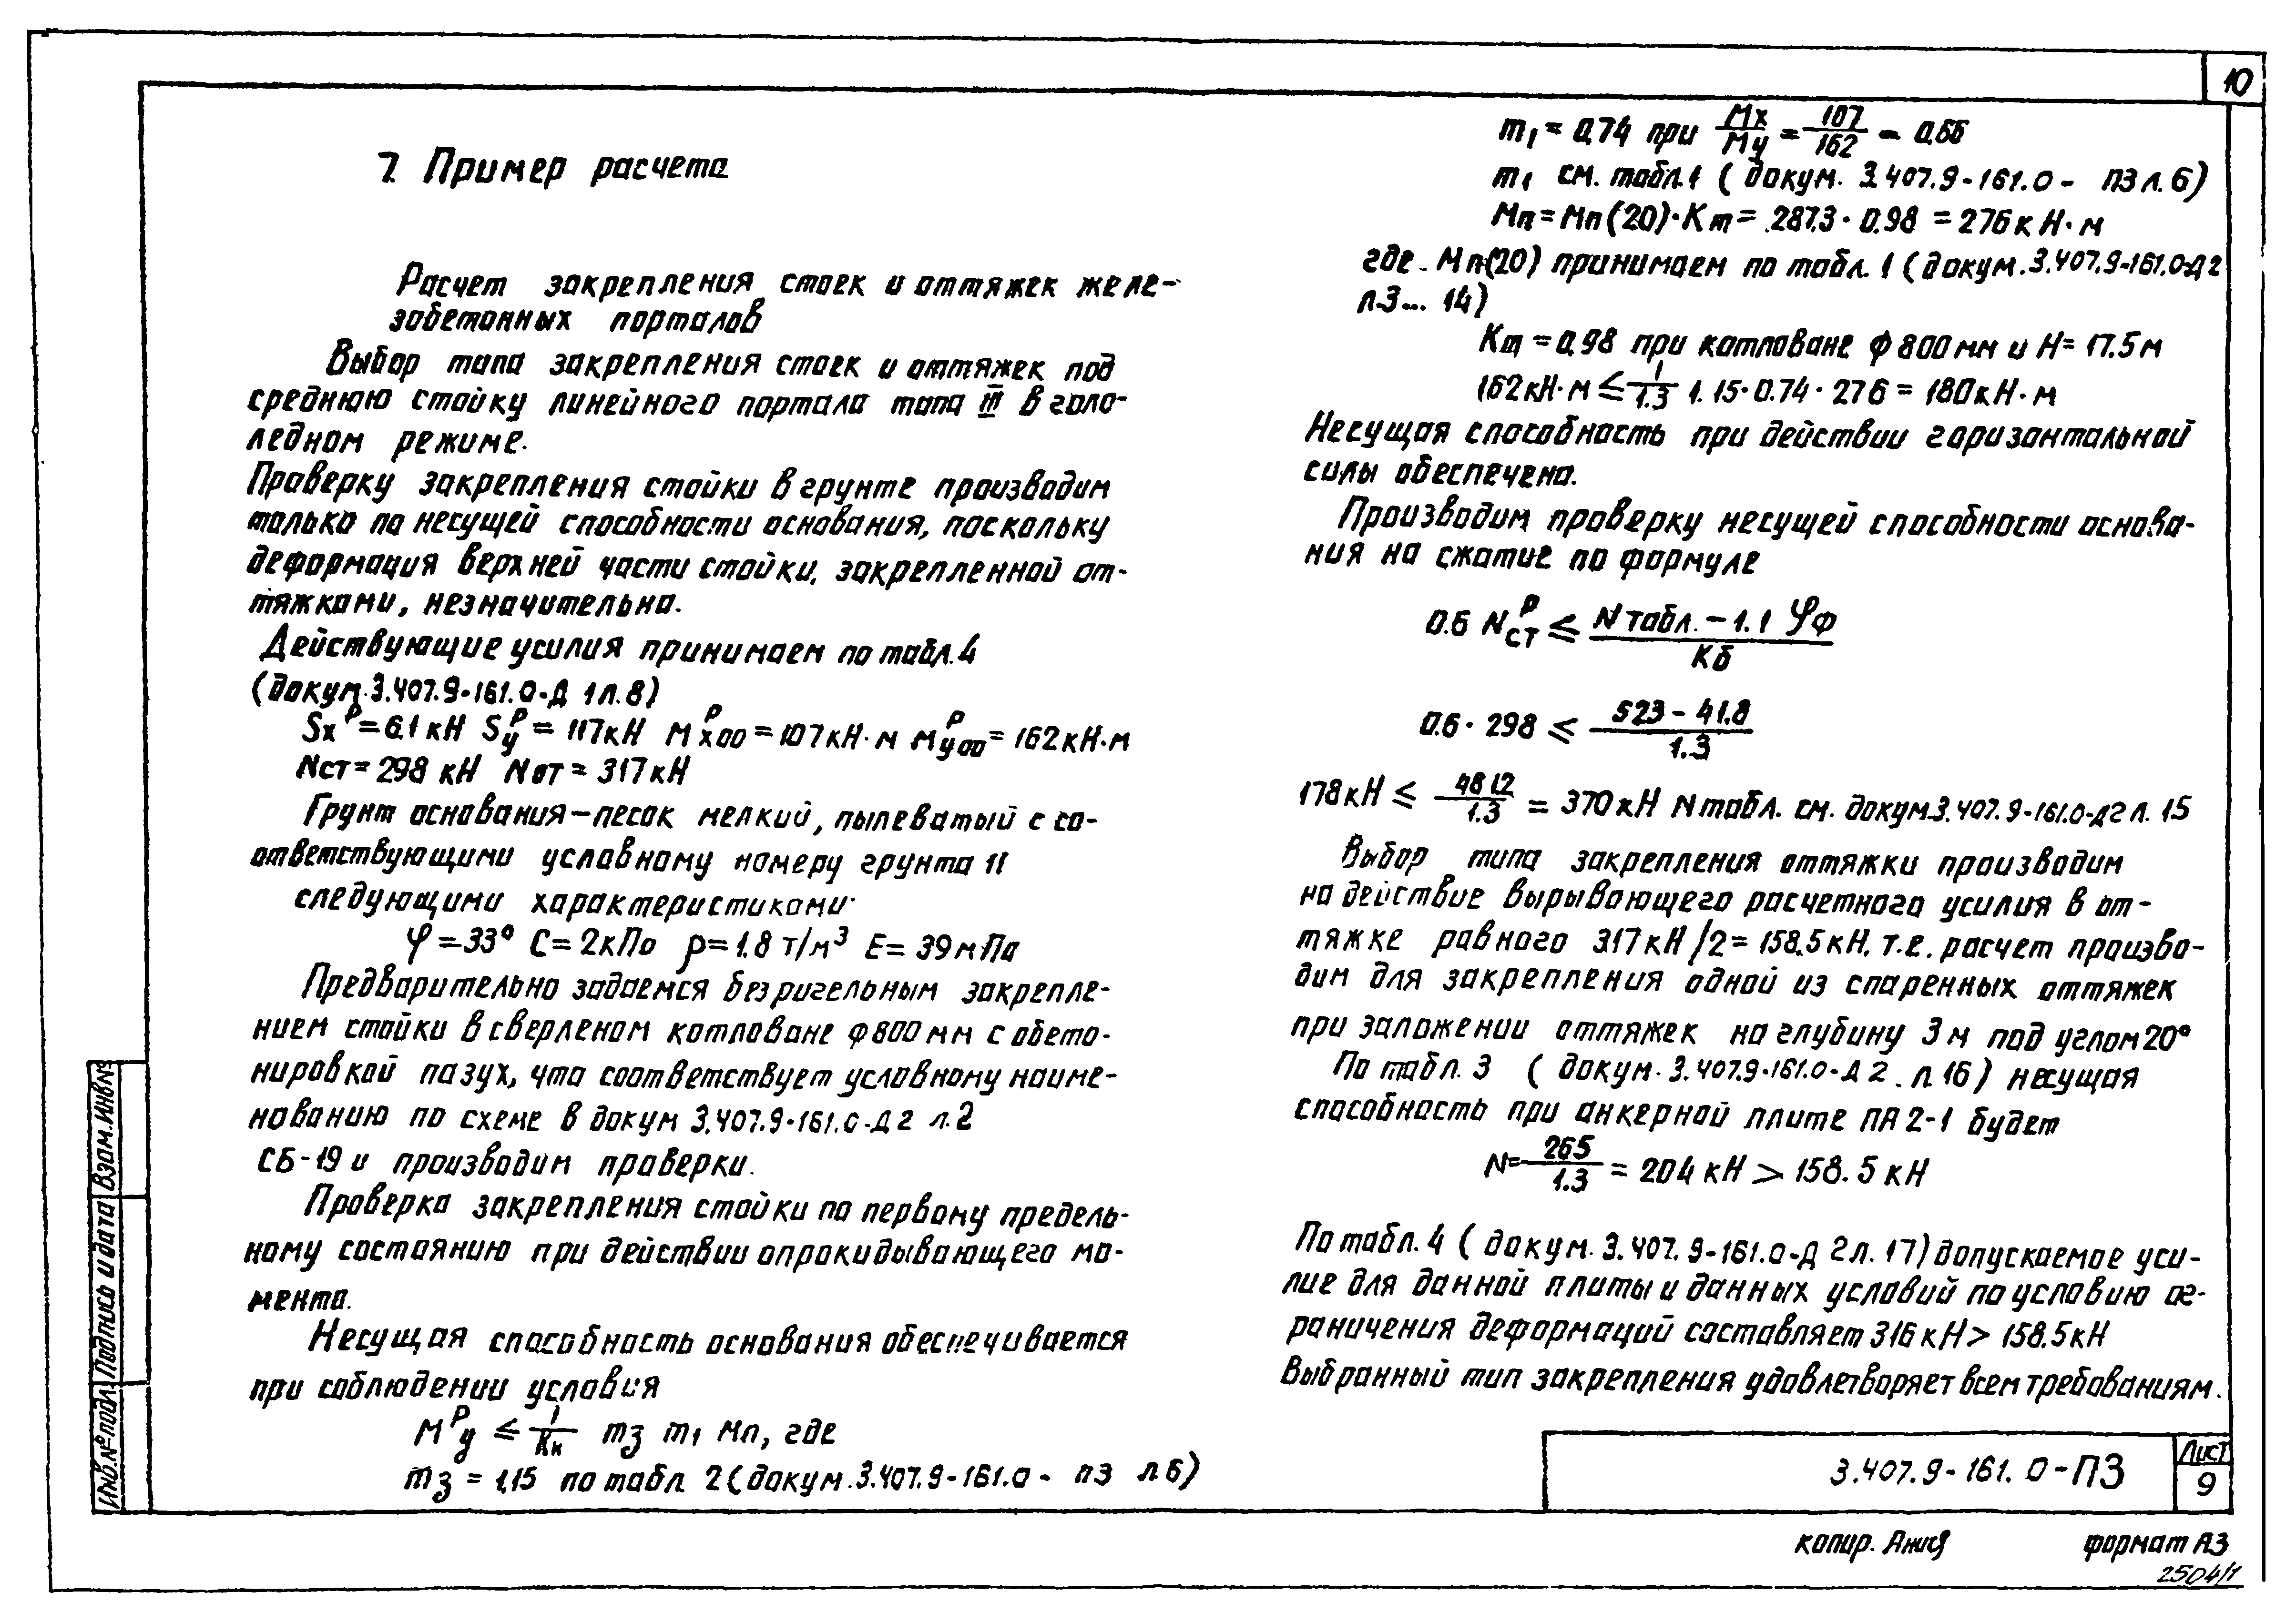 10
7. Пример расчета
Расчет закрепления стоек и оттяжек желе-
зобетонных порталов
Выбор типа закрепления стоек и оттяжек под
среднюю стойку линейного портала типа III в голо-
ледном режиме.
Проверку закрепления стойки в грунте производим
только по несущей способности основания, поскольку
деформация верхней части стойки, закрепленной от-
тяжками, незначительна.
Действующие усилия принимаем по табл. 4
(докум. 3.407.9-161.0-Д 1л.8)
Sx^р = 6.1 кН Sу^р = 117кН М^р х00 = 107кН·м М^р у00 = 162кН·м
Nст = 298 кН Nот = 317кН
Грунт основания – песок мелкий, пылеватый с со-
ответствующими условному номеру грунта 11
следующими характеристиками:
φ = 33° С = 2кПа ρ = 1.8 т/м³ Е = 39мПа
Предварительно задаемся безригельным закрепле-
нием стойки в сверленом котловане ф 800 мм с обето-
нировкой пазух, что соответствует условному наиме-
нованию по схеме в докум 3.407.9-161.0-Д2 л.2
СБ-19 и производим проверки.
Проверка закрепления стойки по первому предель-
ному состоянию при действии опрокидывающего мо-
мента.
Несущая способность основания обеспечивается
при соблюдении условия
М^р у ≤ 1/Кн m3 m1 Мп, где
m3 = 1,15 по табл 2 (докум. 3.407.9-161.0 - ПЗ л6)
m1 = 0,74 при Мх/Му = 107/162 = 0,66
m1 см. табл.1 (докум. 3.407.9-161.0 - ПЗ л. 6)
Мп = Мп(20)·Кт = 287.3 · 0.98 = 276 кН·м
где Мп(20) принимаем по табл. 1 (докум. 3.407.9-161.0-Д2
л.3... 14)
Кт = 0,98 при котловане ф 800 мм и Н = 17.5м
162кН·м ≤ 1/1.3 1.15·0.74·276 = 180кН·м
Несущая способность при действии горизонтальной
силы обеспечена.
Производим проверку несущей способности основа-
ния на сжатие по формуле
0.6 N^р ст ≤ (N табл. – 1.1 φф)/Кб
0.6 · 298 ≤ (523 – 41.8)/1.3
178кН ≤ 4812/1.3 = 370кН Nтабл. см. докум.3.407.9-161.0-Д2 л. 15
Выбор типа закрепления оттяжки производим
на действие вырывающего расчетного усилия в от-
тяжке равного 317кН/2 = 158.5кН, т.е. расчет произво-
дим для закрепления одной из спаренных оттяжек
при заложении оттяжек на глубину 3м под углом 20°
По табл. 3 (докум. 3.407.9-161.0-Д 2 л 16) несущая
способность при анкерной плите ПА 2-1 будет
N = 265/1.3 = 204 кН > 158.5 кН
По табл. 4 (докум. 3.407.9-161.0-Д 2л. 17) допускаемое уси-
лие для данной плиты и данных условий по условию ог-
раничения деформаций составляет 316 кН > 158.5кН
Выбранный тип закрепления удовлетворяет всем требованиям.
Инв.№подл. Подпись и дата Взам.инв№
3.407.9-161.0-ПЗ
Лист
9
копир. формат А3
2504/1